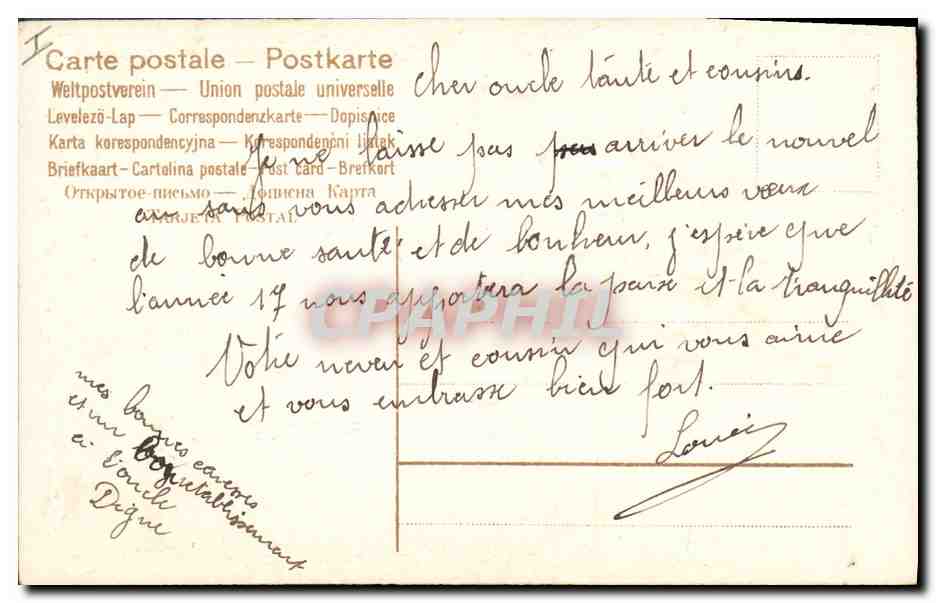 I
Carte postale – Postkarte
Weltpostverein — Union postale universelle
Levelező-Lap — Correspondenzkarte — Dopisnice
Karta korespondencyjna — Korespondenční lístek
Briefkaart - Cartolina postale - Post card - Brefkort
Открытое-письмо — Дописна Карта
TARJETA POSTAL
Cher oncle tante et cousins.
Je ne laisse pas arriver le nouvel
an sans vous adresser mes meilleurs vœux
de bonne santé et de bonheur, j'espère que
l'année 17 nous apportera la paix et la tranquillité
CPAPHIL
Votre neveu et cousin qui vous aime
et vous embrasse bien fort.
Louis
mes bonnes caresses
et un bon retablissement
a l'oncle
Digne